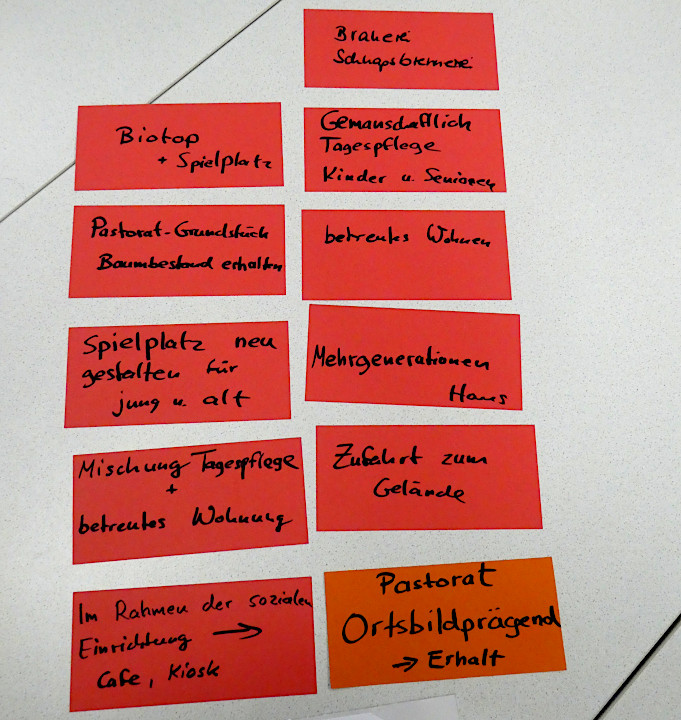 Brauerei
Schnapsbrennerei
Biotop
+ Spielplatz
Gemeinschaftlich
Tagespflege
Kinder u. Senioren
Pastorat-Grundstück
Baumbestand erhalten
betreutes Wohnen
Spielplatz neu
gestalten für
jung u. alt
Mehrgenerationen
Haus
Mischung Tagespflege
+
betreutes Wohnung
Zufahrt zum
Gelände
Im Rahmen der sozialen
Einrichtung →
Cafe, Kiosk
Pastorat
Ortsbildprägend
→ Erhalt